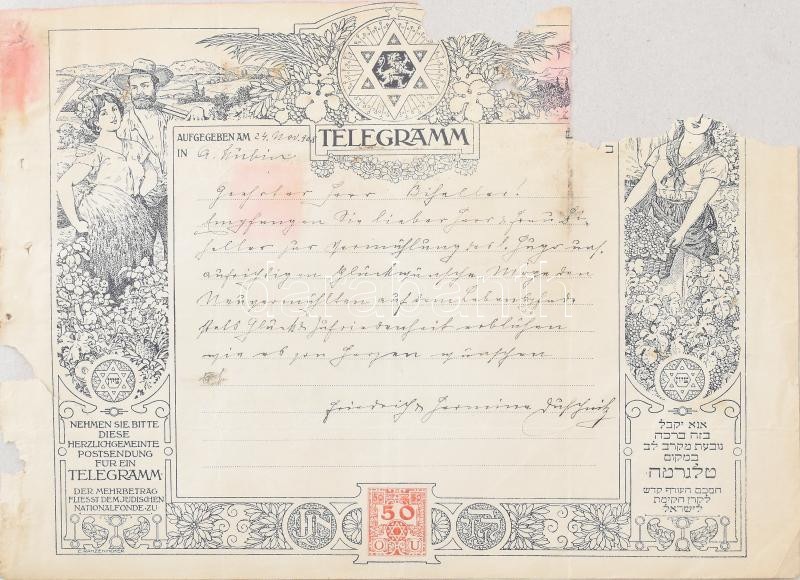 AUFGEGEBEN AM 24. Nov. 908
IN
TELEGRAMM
Geehrter Herr Bihelter!
Empfangen Sie lieber Herr & Frau Bi-
helter zur Vermählung des Hugo uns.
aufrichtigen Glückwünsche Möge den
Neuvermählten auf dem Lebenspfade
stets Glück & Zufriedenheit erblühen
wie es von Herzen wünschen
Friedrich & Hermine Duschnitz
ציון
ציון
NEHMEN SIE BITTE
DIESE
HERZLICHGEMEINTE
POSTSENDUNG
FÜR EIN
TELEGRAMM
DER MEHRBETRAG
FLIESST DEM JÜDISCHEN
NATIONALFONDE·ZU
אנא יקבל
בזה ברכה
נובעת מקרב לב
במקום
טלגרמה
הסכום העודף קדש
לקרן הקימת
לישראל
50
Ö U
E. RANZENHOFER
darabanth